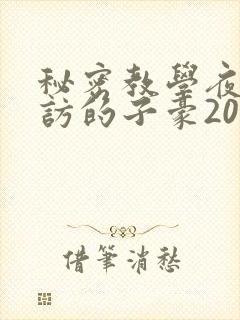 秘密教學夜
訪的子豪20
借筆消愁